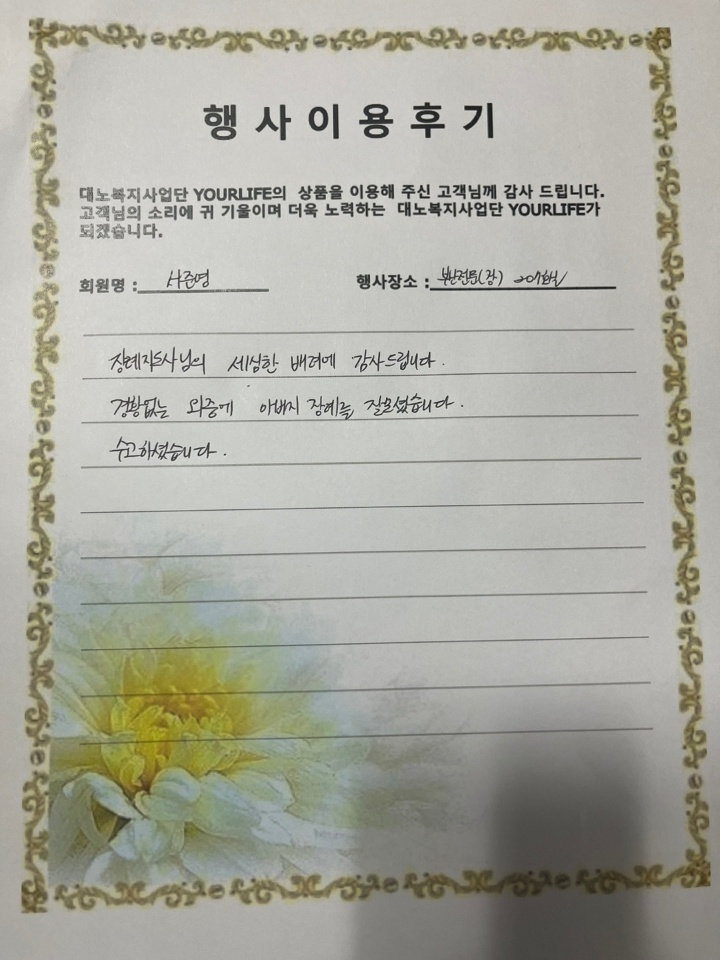 행사이용후기
대노복지사업단 YOURLIFE의 상품을 이용해 주신 고객님께 감사 드립니다.
고객님의 소리에 귀 기울이며 더욱 노력하는 대노복지사업단 YOURLIFE가
되겠습니다.
회원명 : 서준영 행사장소 :
장례지도사님의 세심한 배려에 감사드립니다.
경황없는 와중에 아버지 장례를 잘모셨습니다.
수고하셨습니다.